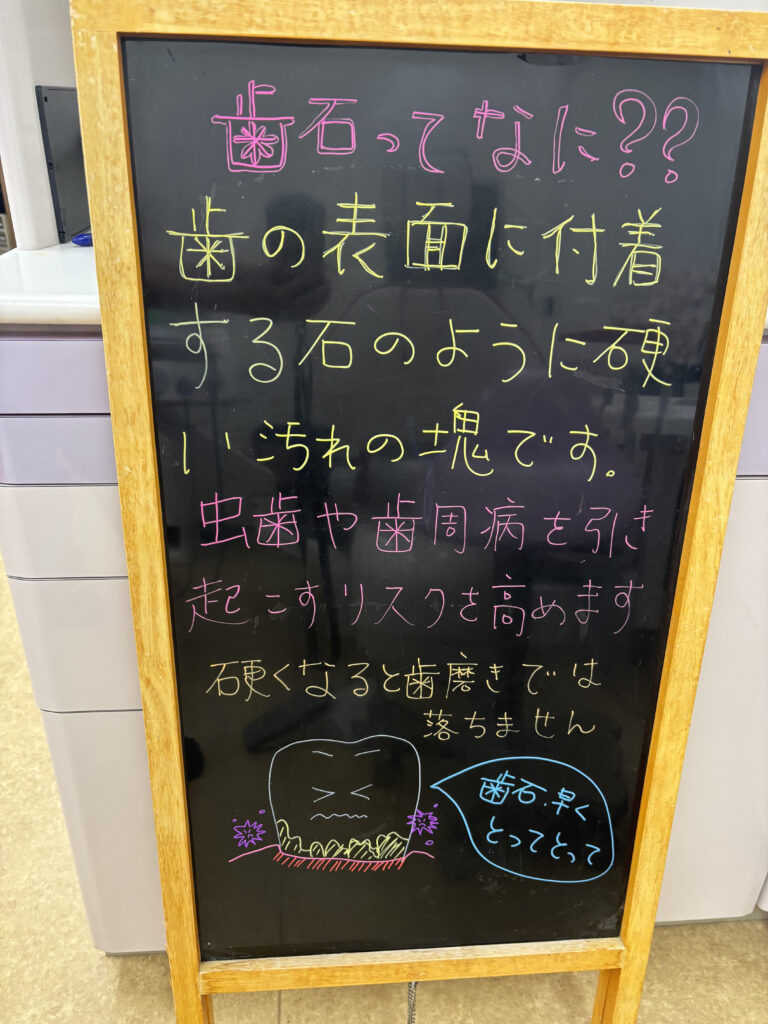 歯石ってなに??
歯の表面に付着
する石のように硬
い汚れの塊です。
虫歯や歯周病を引き
起こすリスクを高めます
硬くなると歯磨きでは
落ちません
歯石、早く
とってとって